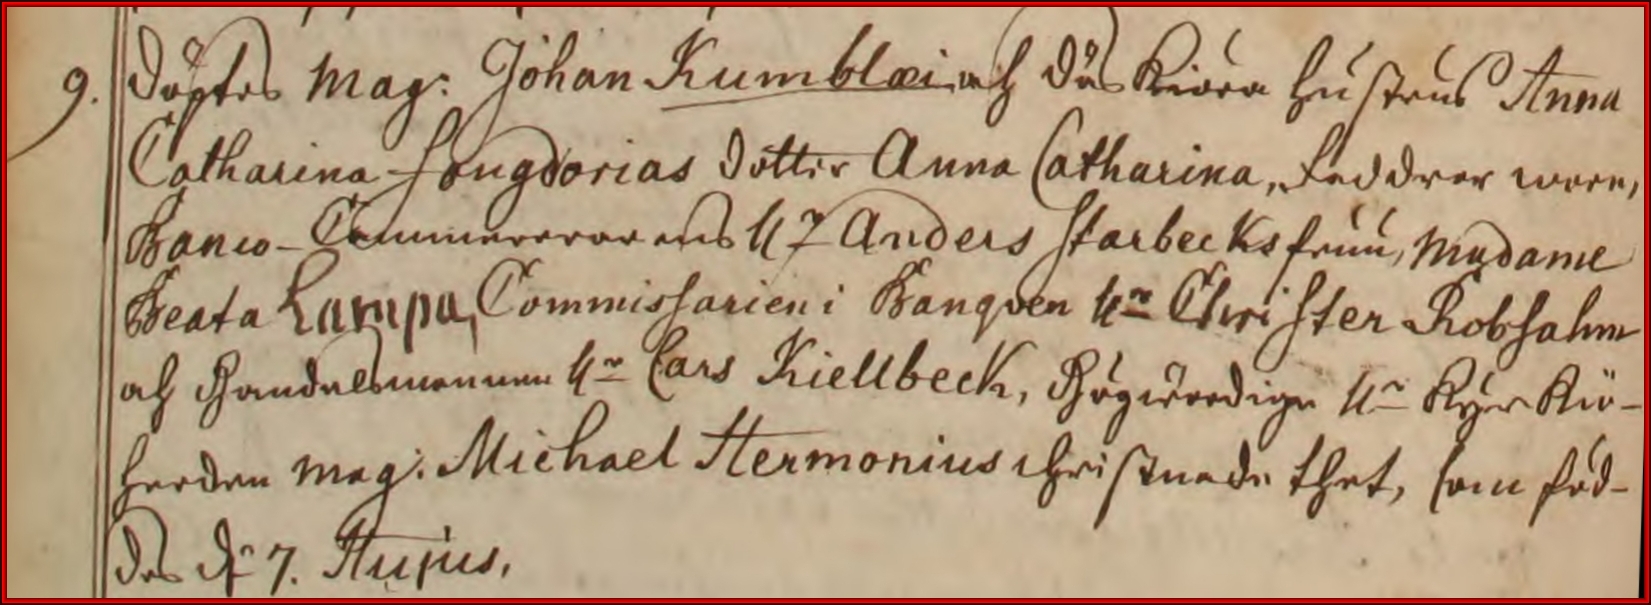 9. döptes Mag: Johan Kumblæi och däs Kiära hustrus Anna
Catharina Dotter Anna Catharina, Faddrar woro,
Banco-Cammererarens H:r Anders Starbecks fruu, Madame
Beata Lampa, Commissarien i Banqven H:r Christer Robsahm
och Handelsmannen H:r Lars Kiellbeck, Högwördige H:r Kyrckio-
herden Mag: Michael Hermonius christnade thet, som föd-
des d: 7. Hujus.